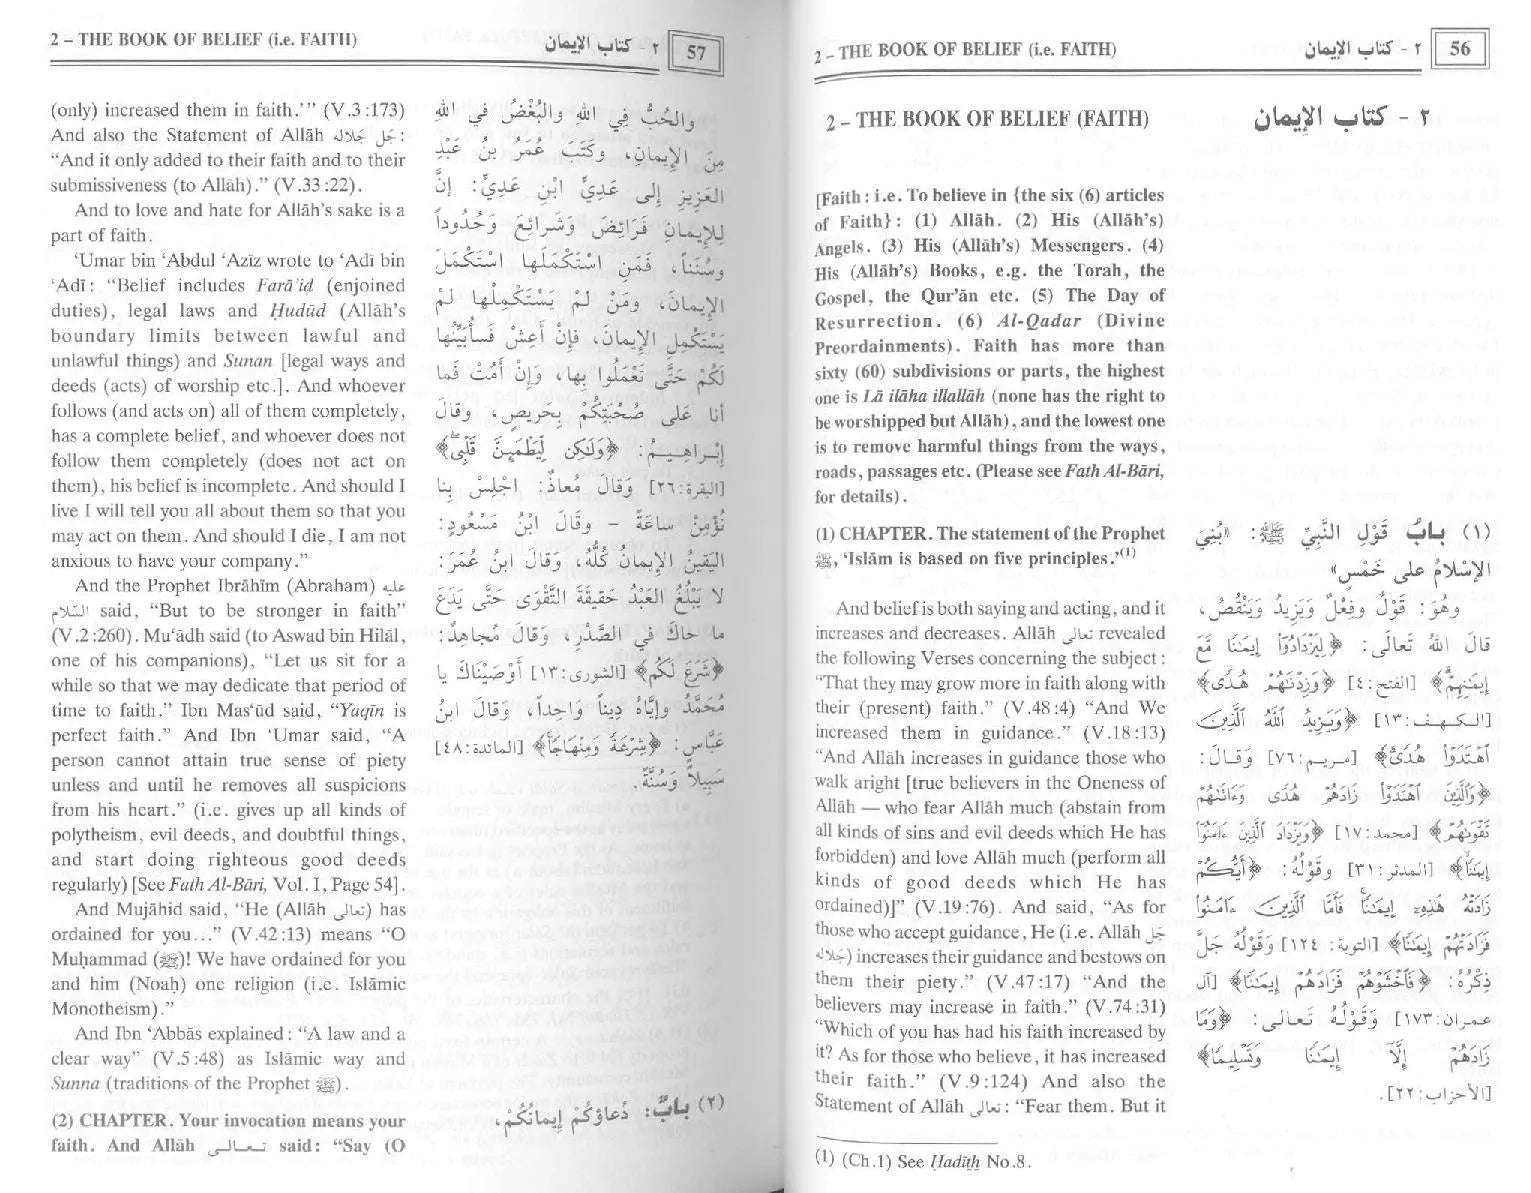 2 – THE BOOK OF BELIEF (i.e. FAITH)
٢ - كتاب الإيمان
56
2 – THE BOOK OF BELIEF (FAITH)
٢ - كتاب الإيمان
[Faith : i.e. To believe in {the six (6) articles
of Faith} : (1) Allāh. (2) His (Allāh's)
Angels. (3) His (Allāh's) Messengers. (4)
His (Allāh's) Books, e.g. the Torah, the
Gospel, the Qur'ān etc. (5) The Day of
Resurrection. (6) Al-Qadar (Divine
Preordainments). Faith has more than
sixty (60) subdivisions or parts, the highest
one is Lā ilāha illallāh (none has the right to
be worshipped but Allāh), and the lowest one
is to remove harmful things from the ways,
roads, passages etc. (Please see Fath Al-Bāri,
for details).
(1) CHAPTER. The statement of the Prophet
ﷺ, 'Islām is based on five principles.'(1)
And belief is both saying and acting, and it
increases and decreases. Allāh تعالى revealed
the following Verses concerning the subject :
"That they may grow more in faith along with
their (present) faith." (V.48 :4) "And We
increased them in guidance." (V.18 :13)
"And Allāh increases in guidance those who
walk aright [true believers in the Oneness of
Allāh — who fear Allāh much (abstain from
all kinds of sins and evil deeds which He has
forbidden) and love Allāh much (perform all
kinds of good deeds which He has
ordained)]" (V.19 :76). And said, "As for
those who accept guidance, He (i.e. Allāh جل
جلاله) increases their guidance and bestows on
them their piety." (V.47 :17) "And the
believers may increase in faith." (V.74 :31)
"Which of you has had his faith increased by
it? As for those who believe, it has increased
their faith." (V.9 :124) And also the
Statement of Allāh تعالى : "Fear them. But it
(١) بابُ قَوْلِ النَّبِيِّ ﷺ: «بُنِيَ
الإِسْلامُ على خَمْسٍ»
وهُوَ: قَوْلٌ وفِعْلٌ ويَزِيدُ ويَنْقُصُ،
قالَ اللهُ تَعالى: ﴿لِيَزْدَادُوٓا۟ إِيمَـٰنًا مَّعَ
إِيمَـٰنِهِمْ﴾ [الفتح:٤] ﴿وَزِدْنَـٰهُمْ هُدًى﴾
[الكهف:١٣] ﴿وَيَزِيدُ ٱللَّهُ ٱلَّذِينَ
ٱهْتَدَوْا۟ هُدًى﴾ [مريم:٧٦] وقَالَ:
﴿وَٱلَّذِينَ ٱهْتَدَوْا۟ زَادَهُمْ هُدًى وَءَاتَىٰهُمْ
تَقْوَىٰهُمْ﴾ [محمد:١٧] ﴿وَيَزْدَادَ ٱلَّذِينَ ءَامَنُوٓا۟
إِيمَـٰنًا﴾ [المدثر:٣١] وقَوْلُهُ: ﴿أَيُّكُمْ
زَادَتْهُ هَـٰذِهِۦٓ إِيمَـٰنًا فَأَمَّا ٱلَّذِينَ ءَامَنُوا۟
فَزَادَتْهُمْ إِيمَـٰنًا﴾ [التوبة: ١٢٤] وقَوْلُهُ جَلَّ
ذِكْرُهُ: ﴿فَٱخْشَوْهُمْ فَزَادَهُمْ إِيمَـٰنًا﴾ [آل
عمران:١٧٣] وقَوْلُهُ تَعالى: ﴿وَمَا
زَادَهُمْ إِلَّآ إِيمَـٰنًا وَتَسْلِيمًا﴾
[الأحزاب:٢٢].
(1) (Ch.1) See Ḥadīth No.8.
2 – THE BOOK OF BELIEF (i.e. FAITH)
٢ - كتاب الإيمان
57
(only) increased them in faith.'" (V.3 :173)
And also the Statement of Allāh جل جلاله :
"And it only added to their faith and to their
submissiveness (to Allāh)." (V.33 :22).
And to love and hate for Allāh's sake is a
part of faith.
'Umar bin 'Abdul 'Azīz wrote to 'Adī bin
'Adī : "Belief includes Farā'iḍ (enjoined
duties), legal laws and Ḥudūd (Allāh's
boundary limits between lawful and
unlawful things) and Sunan [legal ways and
deeds (acts) of worship etc.]. And whoever
follows (and acts on) all of them completely,
has a complete belief, and whoever does not
follow them completely (does not act on
them), his belief is incomplete. And should I
live I will tell you all about them so that you
may act on them. And should I die, I am not
anxious to have your company."
And the Prophet Ibrāhīm (Abraham) عليه
السلام said, "But to be stronger in faith"
(V.2 :260). Mu'ādh said (to Aswad bin Hilāl,
one of his companions), "Let us sit for a
while so that we may dedicate that period of
time to faith." Ibn Mas'ūd said, "Yaqīn is
perfect faith." And Ibn 'Umar said, "A
person cannot attain true sense of piety
unless and until he removes all suspicions
from his heart." (i.e. gives up all kinds of
polytheism, evil deeds, and doubtful things,
and start doing righteous good deeds
regularly) [See Fath Al-Bāri, Vol. I, Page 54].
And Mujāhid said, "He (Allāh تعالى) has
ordained for you..." (V.42 :13) means "O
Muḥammad (ﷺ)! We have ordained for you
and him (Noaḥ) one religion (i.e. Islāmic
Monotheism)."
And Ibn 'Abbās explained : "A law and a
clear way" (V.5 :48) as Islāmic way and
Sunna (traditions of the Prophet ﷺ).
(2) CHAPTER. Your invocation means your
faith. And Allāh تعالى said : "Say (O
والحُبُّ فِي اللهِ والبُغْضُ في اللهِ
مِنَ الإِيمَانِ، وكَتَبَ عُمَرُ بنُ عَبْدِ
العَزِيزِ إلى عَدِيِّ ابْنِ عَدِيٍّ: إنَّ
لِلإِيمَانِ فَرَائِضَ وَشَرَائِعَ وَحُدُوداً
وسُنَناً، فَمَنِ اسْتَكْمَلَهَا اسْتَكْمَلَ
الإِيمَانَ، ومَنْ لَمْ يَسْتَكْمِلْها لَمْ
يَسْتَكْمِلِ الإِيمَانَ، فإنْ أعِشْ فَسأُبَيِّنُها
لَكُم حَتَّى تَعْمَلُوا بِهَا، وَإِنْ أَمُتْ فَما
أنا عَلَى صُحْبَتِكُمْ بِحَرِيصٍ، وقَالَ
إبْرَاهِيمُ: ﴿وَلَـٰكِن لِّيَطْمَئِنَّ قَلْبِى﴾
[البقرة:٢٦٠] وَقَالَ مُعاذٌ: اجْلِسْ بِنا
نُؤْمِنْ ساعَةً – وقَالَ ابْنُ مَسْعُودٍ:
اليَقِينُ الإِيمَانُ كُلُّهُ، وقالَ ابنُ عُمَرَ:
لا يَبْلُغُ العَبْدُ حَقِيقَةَ التَّقْوَى حَتَّى يَدَعَ
ما حَاكَ فِي الصَّدْرِ، وقَالَ مُجاهِدٌ:
﴿شَرَعَ لَكُم﴾ [الشورى:١٣] أَوْصَيْنَاكَ يا
مُحَمَّدُ وإيَّاهُ دِيناً وَاحِداً، وقالَ ابنُ
عَبَّاسٍ: ﴿شِرْعَةً وَمِنْهَاجًا﴾ [المائدة:٤٨]
سَبِيلاً وسُنَّةً
(٢) بابٌ: دُعاؤكُم إِيمَانُكُمْ،